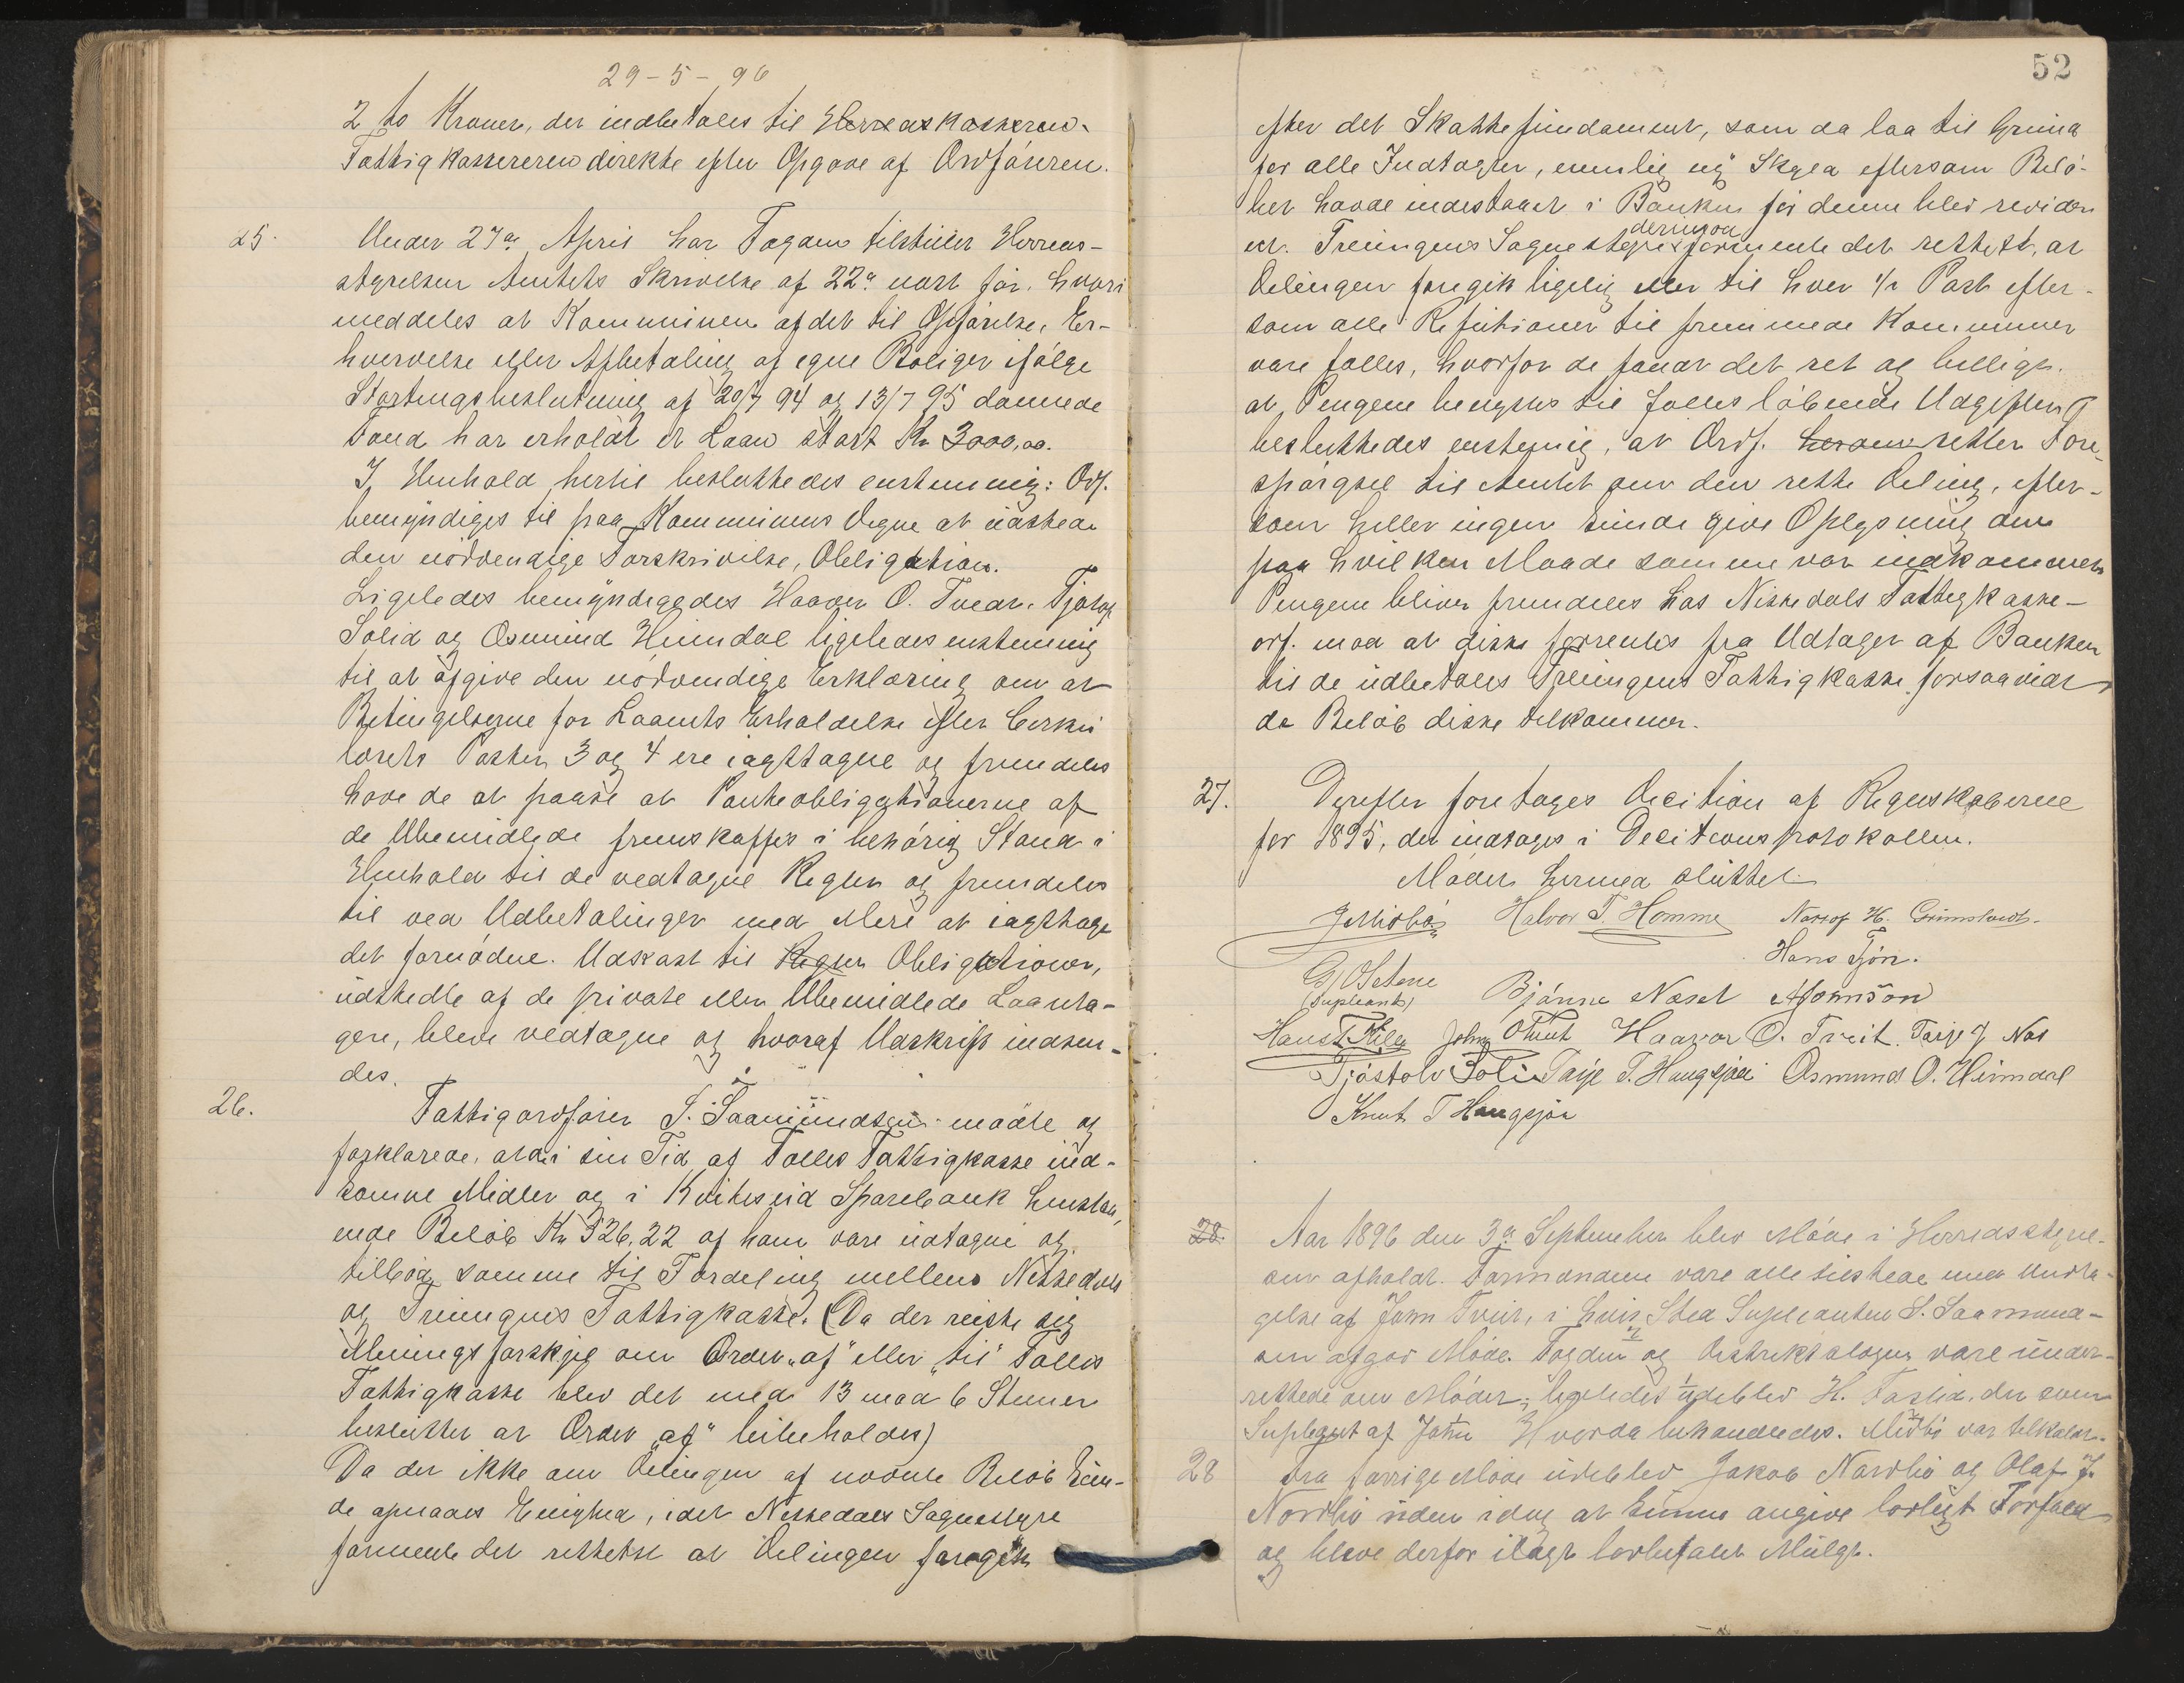 29-5-96
2 to Kroner, der indbetales til Herredskaskereren.
Fattigkassereren direkte efter Opgave af Ordføreren.
25.
Under 27de April har Fogden tilstillet Herreds-
styrelsen Amtets Skrivelse af 22de næst før, hvori
meddeles at Kommunen af det til Opførelse, Er-
hvervelse eller Afbetaling af egne Boliger ifølge
Stortingsbeslutning af 20/7 94 og 13/7 95 dannede
Fond har erholdt et Laan stort Kr 3000,00.
I Henhold hertil besluttedes enstemmig: Ordf.
bemyndiges til paa Kommunens Vegne at udstede
den nødvendige Forskrivelse, Obligation.
Ligeledes bemyndigedes Haaver O. Tveit, Tjøstolv
Solid og Osmund Heimdal ligeledes enstemmig
til at afgive den nødvendige Erklæring om at
Betingelserne for Laanets Erholdelse efter Cirku
lærets Poster 3 og 4 ere iagttagne og fremdeles
have de at paase at Panteobligationerne af
de Ubemidlede fremskaffes i behørig Stand i
Henhold til de vedtagne Regler og fremdeles
til ved Udbetalinger med Mere at iagttage
det fornødne. Udskast til Regler Obligationer,
udstedte af de private eller Ubemidlede Laanta-
gere, bleve vedtagne og hvoraf Udskrift indsen-
des.
26.
Fattigordfører S. Saamundsen mødte og
forklarede, at de i sin Tid af Fælles Fattigkasse ind-
komne Midler og i Kviteseid Sparebank henstaa-
ende Beløb Kr 326,22 af ham vare udtagne og
tilbød samme til Fordeling mellem Nissedals
og Treungens Fattigkasse. (Da der reiste sig
Meningsforskjel om Ordet „af“ eller „til“ Fælles
Fattigkasse blev det med 13 mod 6 Stemmer
besluttet at Ordet „af“ beibeholdes)
Da der ikke om Delingen af nævnte Beløb kun-
de opnaaes Enighed, idet Nissedals Sognestyre
formente det retteste at Delingen foregik
52
efter det Skattefundament, som da laa til Grund
for alle Indtægter, nemlig ny Skyld eftersom Belø-
bet havde indestaaet i Banken før denne blev revider
et. Treungens Sognestyre formente
derimod
det rettest, at
Delingen foregik ligelig eller til hver 1/2 Part efter-
som alle Refusioner til fremmede Kommuner
vare fælles, hvorfor de fandt det ret og billigt.
at Pengene benyttes til fælles løbende Udgifter
besluttedes enstemmig, at Ordf. herom retter Fore-
spørgsel til Amtet om den rette Deling, efter-
som heller ingen kunde give Oplysning om
paa hvilken Maade samme var indkommen
Pengene bliver fremdeles hos Nissedals Fattigkasse-
orf. mod at disse forrentes fra Udtaget af Banken
til de udbetales Treungens Fattigkasse forsaavidt
de Beløb disse tilkommer.
27.
Derefter foretages Decition af Regnskaberne
for 1895, der indtages i Decitionsprotokollen.
Mødet hermed sluttet.
J Midbø Halvor T. Homme Nærof H. Grimstveit.
Hans Tjøn.
G. O. Stene
(Supleant)
Bjønne Næset A Jomsson
Hans T. Kile John O Tveit Haavor O. Tveit. Tarje G Næs
Tjøstolv Soli Tarje T. Haugsjaa Osmund O. Heimdal
Knut T Haugsjaa
28.
Aar 1896 den 3de September blev Møde i Herredsstyrel-
sen afholdt. Formændene vare alle tilstede med Undta-
gelse af John Tveit, i hvis Sted Supleanten S. Saamund-
sen afgav Møde. Fogden og Distriktslægen vare under-
rettede om Mødet; ligeledes udeblev H. Faslid, der som
Supleant af John Hvorda behandledes. Midbø var tilkaldt.
28
Fra forrige Møde udeblev Jakob Nordbø og Olaf J.
Nordbø uden idag at kunne angive lovligt Forfald
og bleve derfor ilagt lovbefalet Mulgt.